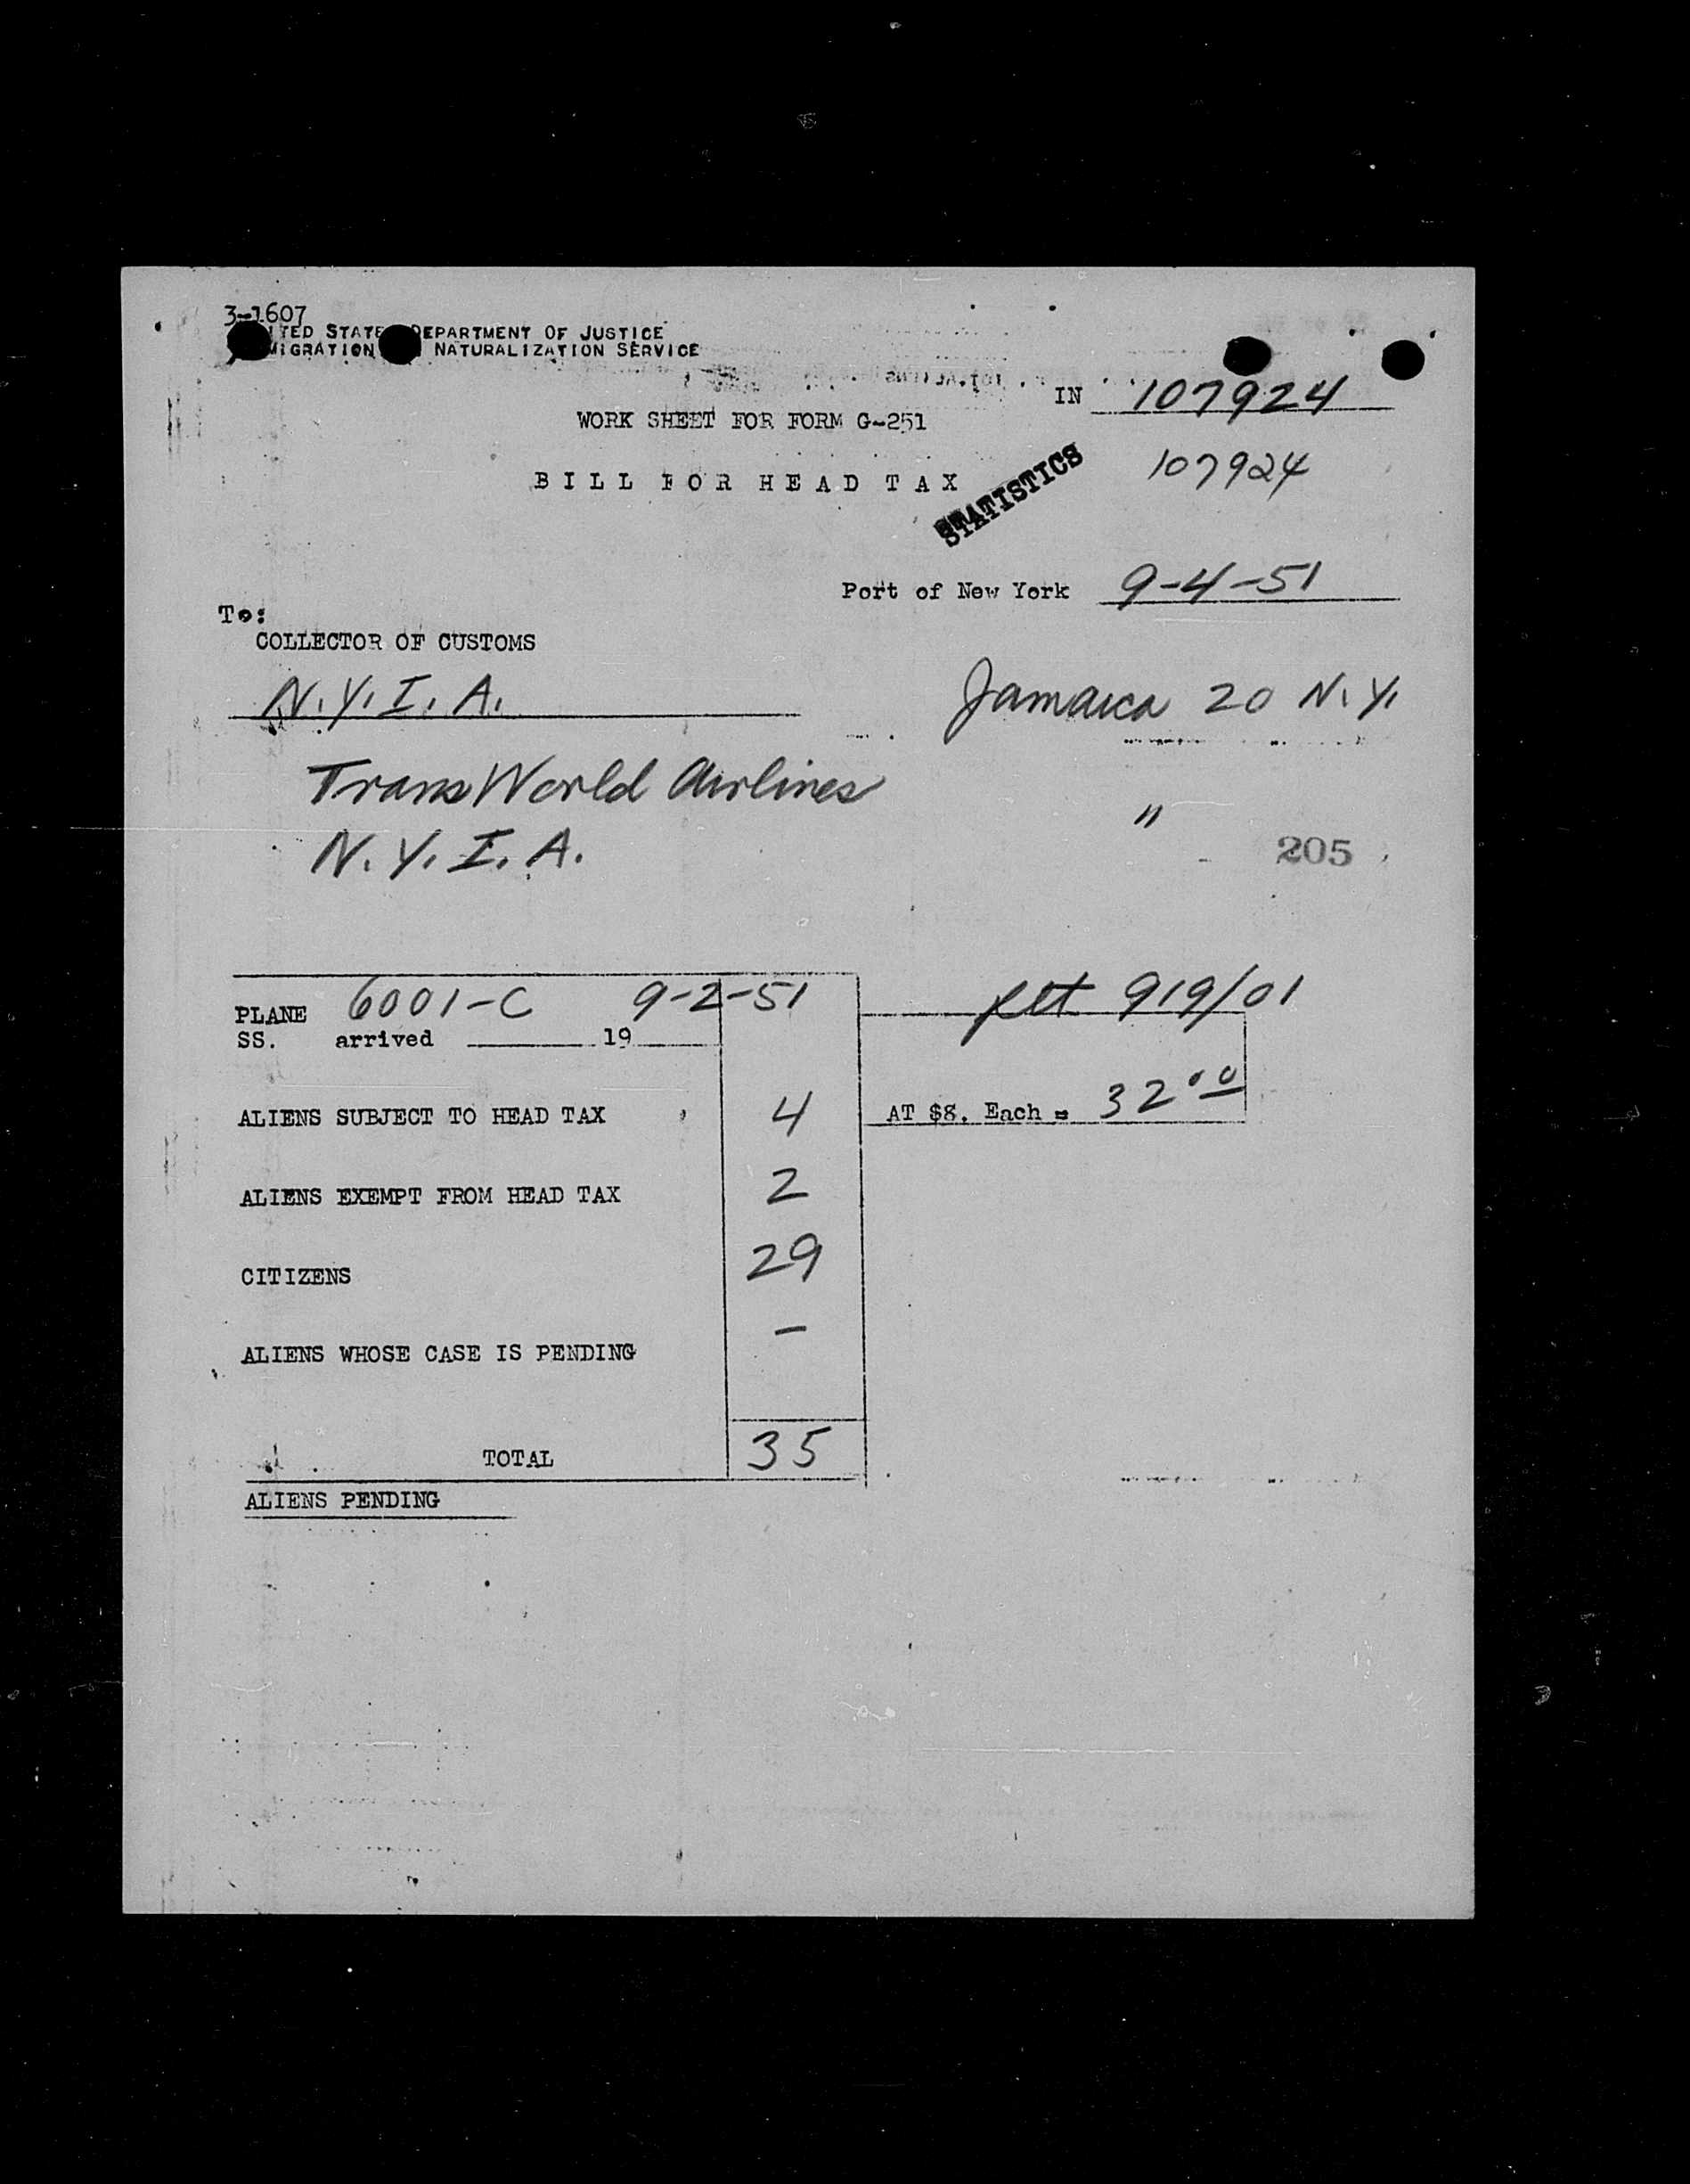 3-1607
ITED STATE DEPARTMENT OF JUSTICE
MIGRATION NATURALIZATION SERVICE
IN 107924
WORK SHEET FOR FORM G-251
107924
BILL FOR HEAD TAX
STATISTICS
Port of New York 9-4-51
To:
COLLECTOR OF CUSTOMS
N.Y.I.A. Jamaica 20 N.Y.
Trans World Airlines "
N.Y.I.A. 205
PLANE 6001-C 9-2-51 flt 919/01
SS. arrived 19
ALIENS SUBJECT TO HEAD TAX 4 AT $8. Each = 32.00
ALIENS EXEMPT FROM HEAD TAX 2
CITIZENS 29
ALIENS WHOSE CASE IS PENDING -
TOTAL 35
ALIENS PENDING